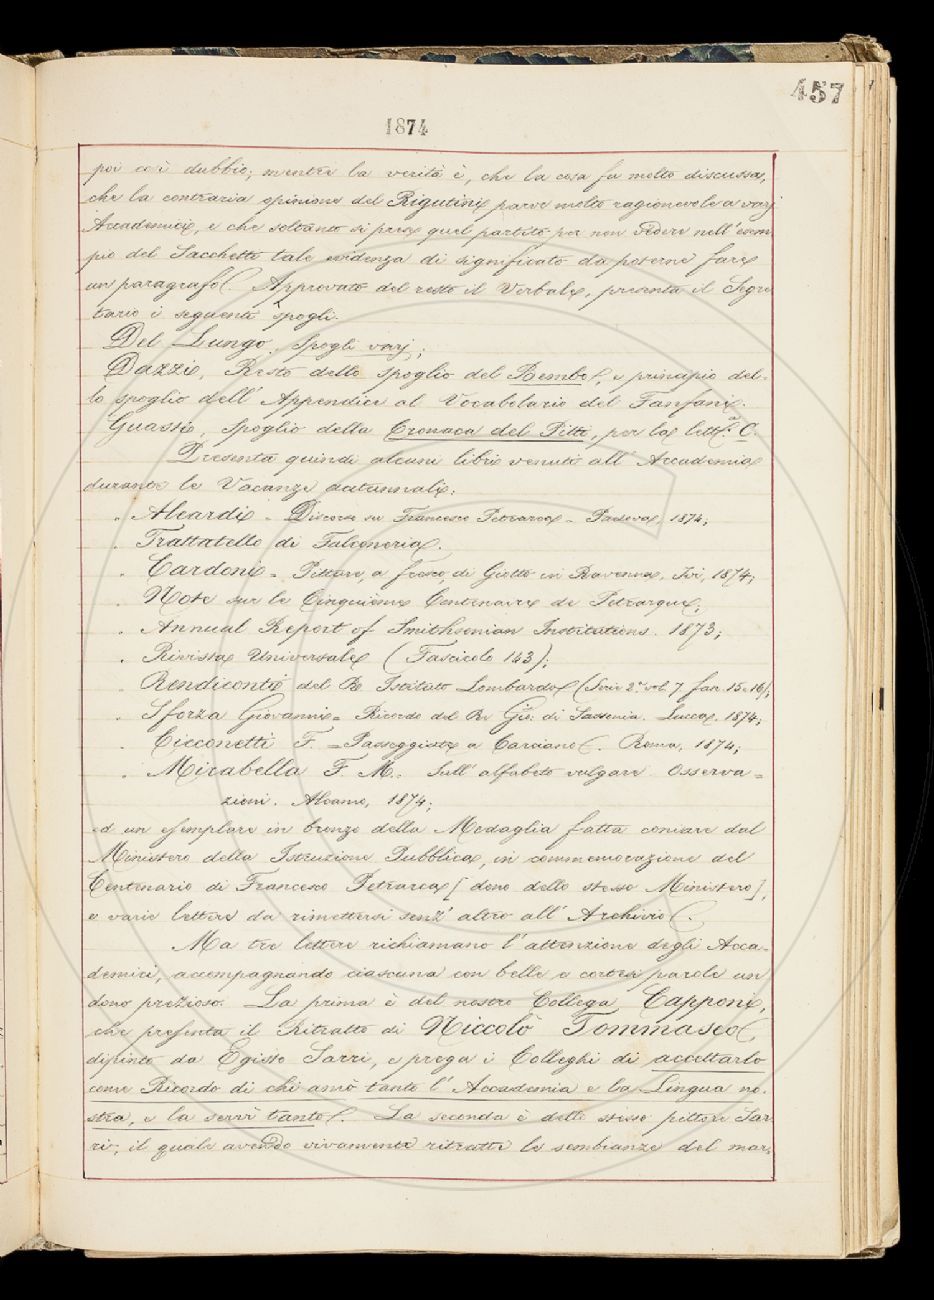 457
1874
poi così dubbio; mentre la verità è, che la cosa fu molto discussa,
che la contraria opinione del Rigutini parve molto ragionevole a varj
Accademici, e che soltanto si prese quel partito per non vedere nell'esem
pio del Sacchetti tale evidenza di significato da poterne fare
un paragrafo. Approvato del resto il Verbale, presenta il Segre
tario i seguenti spogli.
Del Lungo. Spogli varj;
Dazzi, Resto dello spoglio del Bembo, e principio del-
lo spoglio dell'Appendice al Vocabolario del Fanfani.
Guasti, Spoglio della Cronaca del Pitti, per la lettª. C.
Presenta quindi alcuni libri venuti all'Accademia
durante le Vacanze autunnali:
Aleardi - Discorso su Francesco Petrarca - Padova, 1874;
Trattatello di Falconeria.
Cardoni - Pitture a fresco di Giotto in Ravenna, Ivi, 1874;
Note sur le Cinquième Centenaire de Petrarque;
Annual Report of Smithsonian Institutions. 1873;
Rivista Universale (Fascicolo 143);
Rendiconti del R. Istituto Lombardo (Serie 2ª vol. 7 fas. 15 e 16);
Sforza Giovanni = Ricordo del Bº Gio. di Lucca, 1874;
Cicconetti F. = Passeggiata a Carciano. Roma, 1874;
Mirabella F. M. Sull'alfabeto volgare. Osserva=
zioni. Alcamo, 1874;
ed un esemplare in bronzo della Medaglia fatta coniare dal
Ministero della Istruzione Pubblica, in commemorazione del
Centenario di Francesco Petrarca [dono dello stesso Ministero],
e varie lettere da rimettersi senz'altro all'Archivio.
Ma tre lettere richiamano l'attenzione degli Acca-
demici, accompagnando ciascuna con belle e cortesi parole un
dono prezioso. La prima è del nostro Collega Capponi,
che presenta il Ritratto di Niccolò Tommaseo,
dipinto da Egisto Sarri, e prega i Colleghi di accettarlo
come Ricordo di chi amò tanto l'Accademia e la Lingua no-
stra, e la servì tanto. La seconda è dello stesso pittore Sar
ri, il quale avendo vivamente ritratte le sembianze del mar,